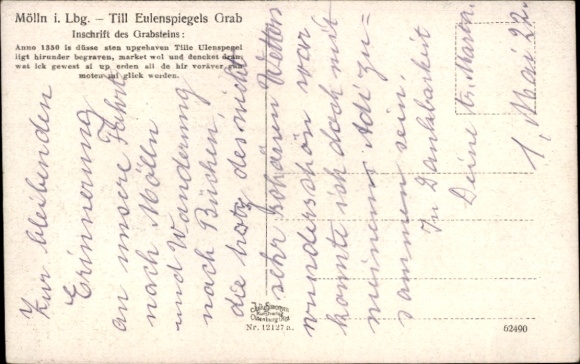 Mölln i. Lbg. – Till Eulenspiegels Grab
Inschrift des Grabsteins:
Anno 1350 is düsse sten upgehaven Tille Ulenspegel
ligt hirunder begraven, market wol und dencket dran,
wat ick gewest si up erden all de hir voräver gan
moten mi glick werden.
Zur bleibenden
Erinnerung
an unsere Fahrt
nach Mölln
und Wanderung
nach Büchen,
die trotz des nicht
sehr schönen Wetters
wunderschön war
konnte ich doch mit
meinem Adi zu=
sammen sein.
In Dankbarkeit
Deine tr. Martha.
1. Mai 22.
Nr. 12127 a.
62490